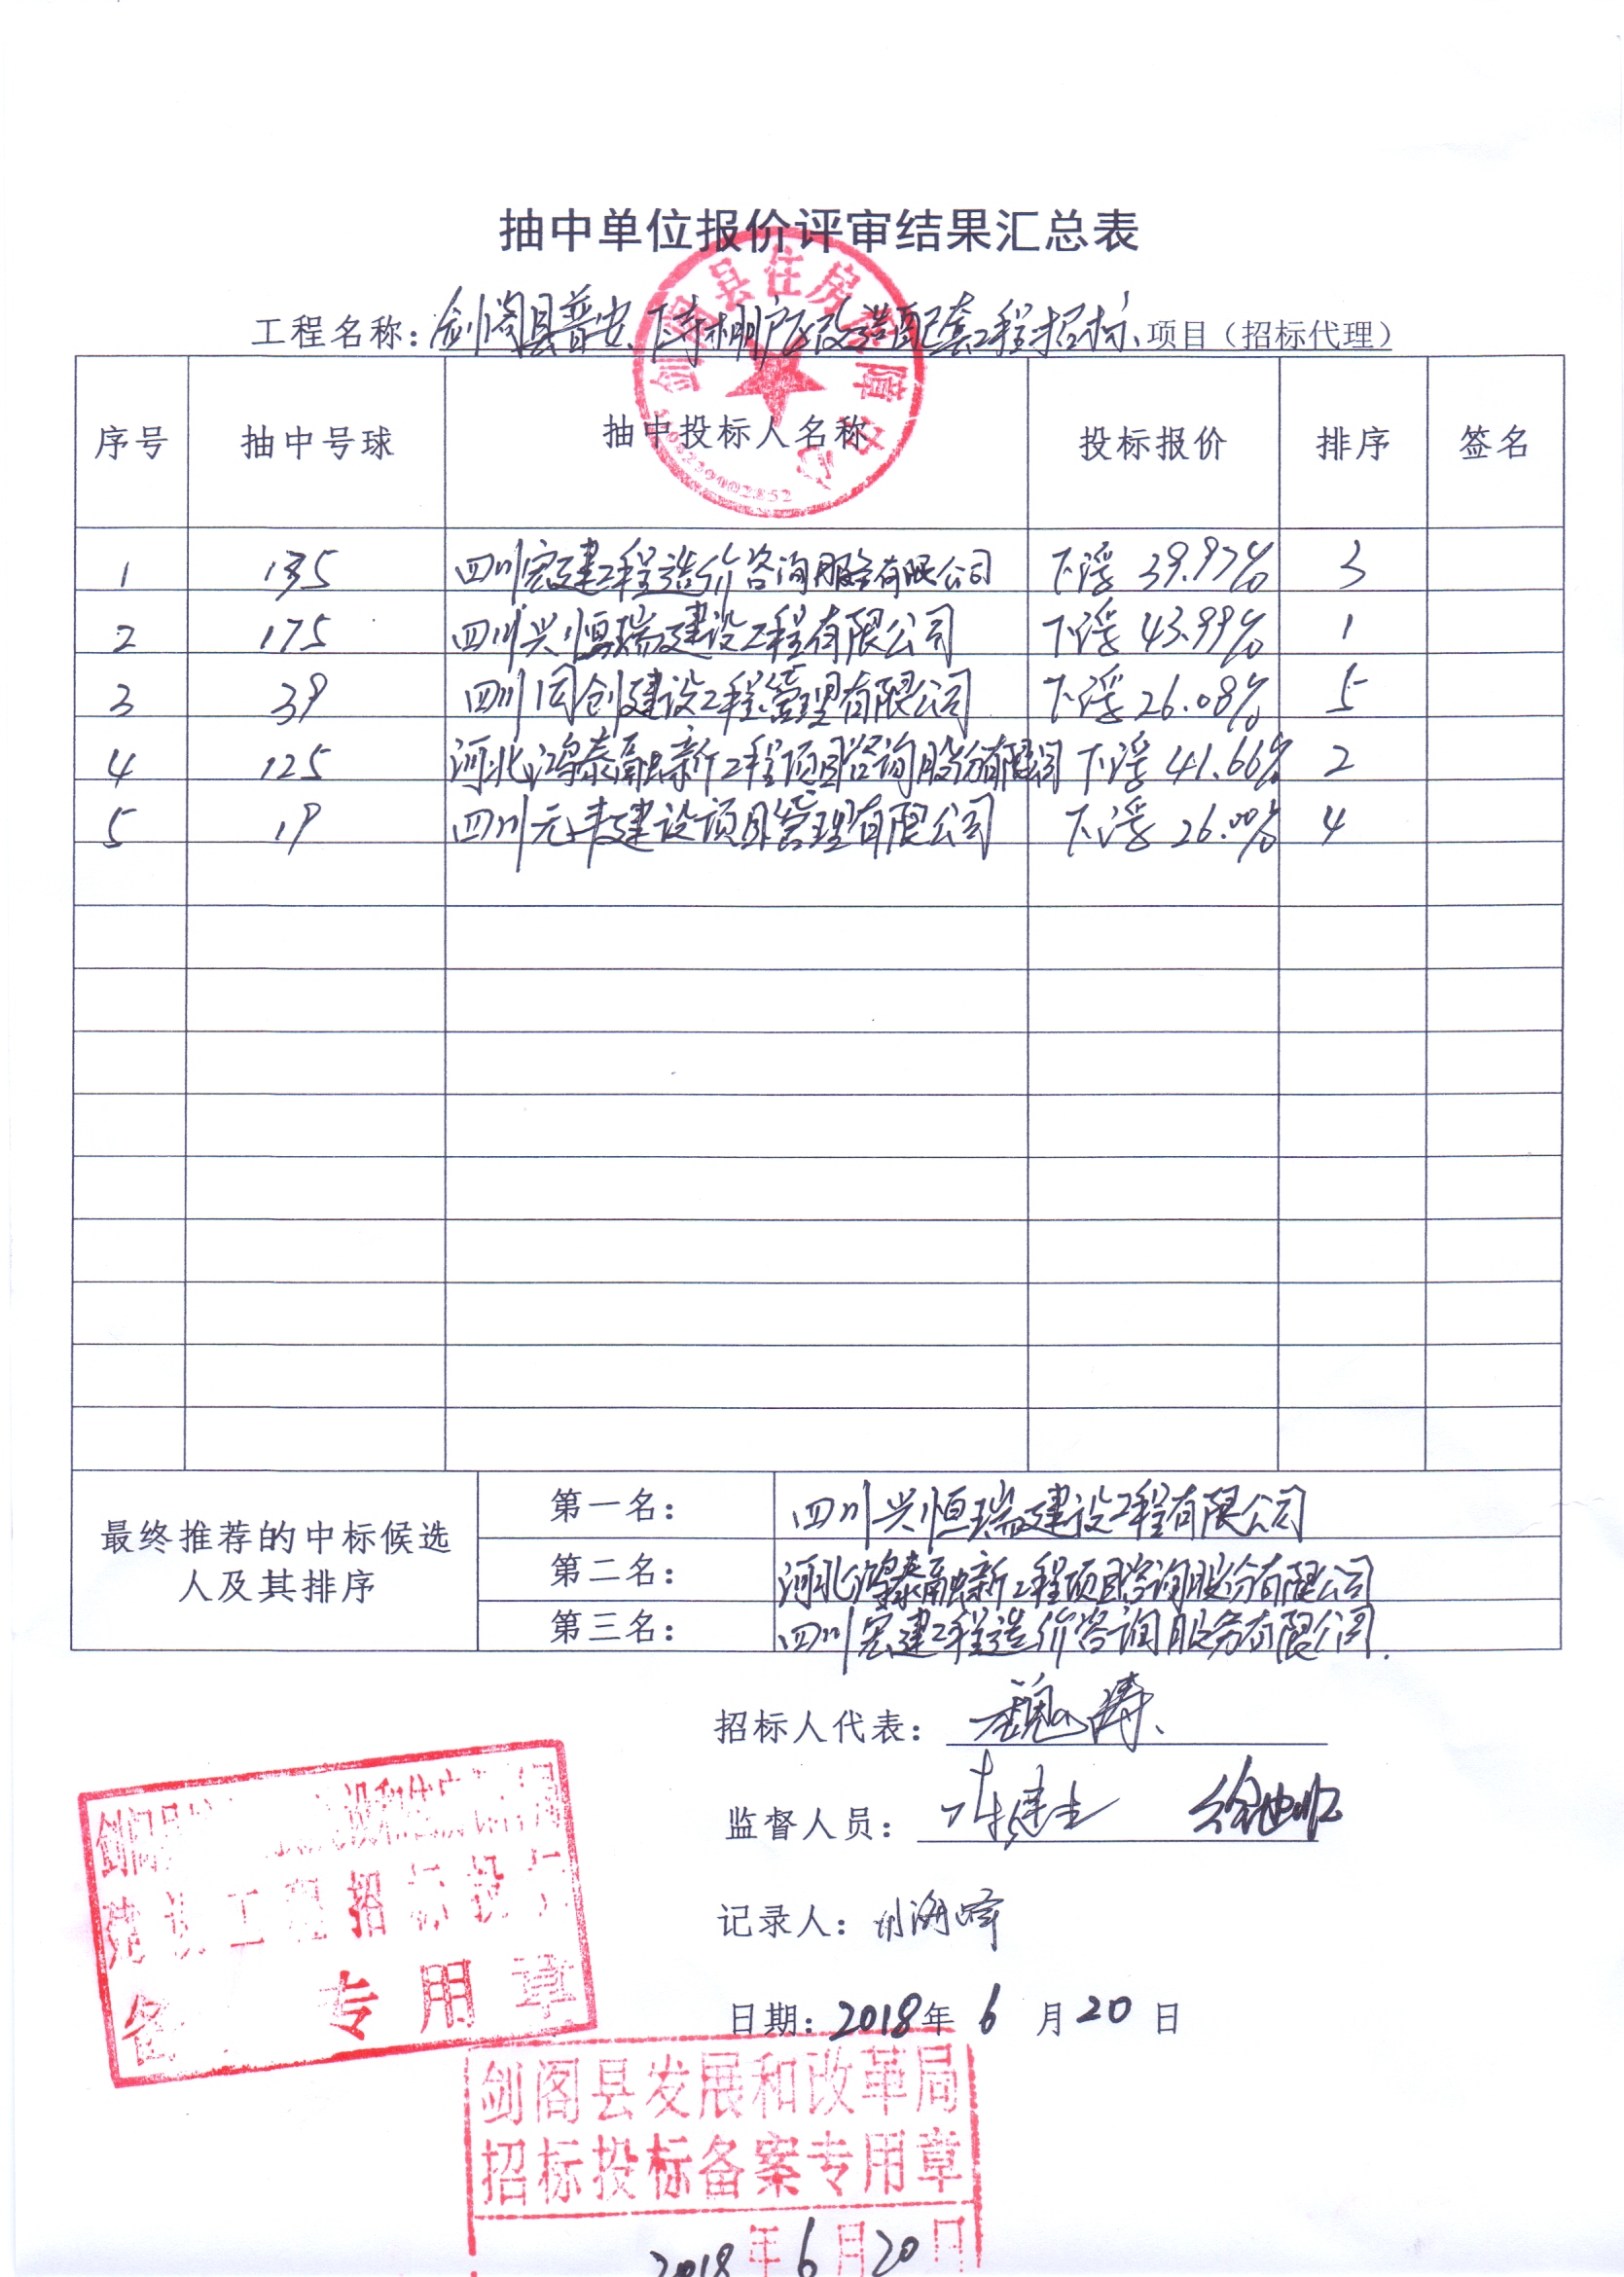 抽中单位报价评审结果汇总表
工程名称：剑阁县普安、下寺棚户区改造配套工程招标、项目（招标代理）
剑阁县住房保障中心
序号 抽中号球 抽中投标人名称 投标报价 排序 签名
1 135 四川宏建工程造价咨询服务有限公司 下浮39.97% 3
2 175 四川兴恒瑞建设工程有限公司 下浮43.99% 1
3 39 四川同创建设工程管理有限公司 下浮26.08% 5
4 125 河北鸿泰融新工程项目咨询股份有限公司 下浮41.66% 2
5 19 四川元丰建设项目管理有限公司 下浮26.00% 4
最终推荐的中标候选人及其排序
第一名： 四川兴恒瑞建设工程有限公司
第二名： 河北鸿泰融新工程项目咨询股份有限公司
第三名： 四川宏建工程造价咨询服务有限公司.
招标人代表： 魏涛
监督人员：
记录人：
日期：2018年6月20日
建设工程招标投
专用章
剑阁县发展和改革局
招标投标备案专用章
2018年6月20日